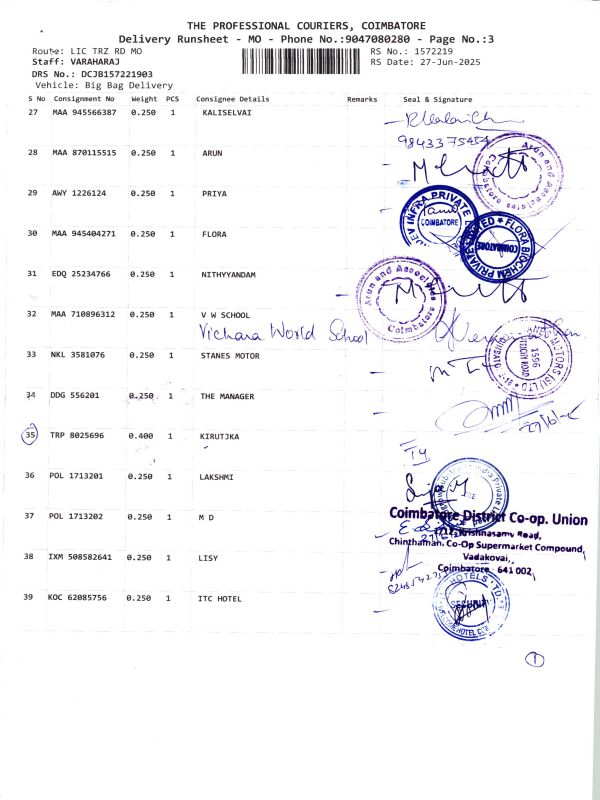 THE PROFESSIONAL COURIERS, COIMBATORE
Delivery Runsheet - MO - Phone No.:9047080280 - Page No.:3
Route: LIC TRZ RD MO RS No.: 1572219
Staff: VARAHARAJ RS Date: 27-Jun-2025
DRS No.: DCJB157221903
Vehicle: Big Bag Delivery
S No Consignment No Weight PCS Consignee Details Remarks Seal & Signature
27 MAA 945566387 0.250 1 KALISELVAI
28 MAA 870115515 0.250 1 ARUN
Arun and Associates
Coimbatore
29 AWY 1226124 0.250 1 PRIYA
DEV INFRA PRIVATE
COIMBATORE
30 MAA 945404271 0.250 1 FLORA
FLORA BIOCHEM PRIVATE LIMITED
COIMBATORE
31 EDQ 25234766 0.250 1 NITHYYANDAM
Arun and Associates
Coimbatore
32 MAA 710896312 0.250 1 V W SCHOOL
Vichara World School
33 NKL 3581076 0.250 1 STANES MOTOR
STANES MOTORS (SI) LTD
1596
TRICHY ROAD
34 DDG 556201 0.250 1 THE MANAGER
27/6/
35 TRP 8025696 0.400 1 KIRUTJKA
36 POL 1713201 0.250 1 LAKSHMI
37 POL 1713202 0.250 1 M D
Coimbatore District Co-op. Union
Krishnasamy Road,
Chinthamani Co-Op Supermarket Compound,
Vadakovai,
Coimbatore - 641 002
38 IXM 508582641 0.250 1 LISY
39 KOC 62085756 0.250 1 ITC HOTEL
HOTELS LTD
SECURITY
1